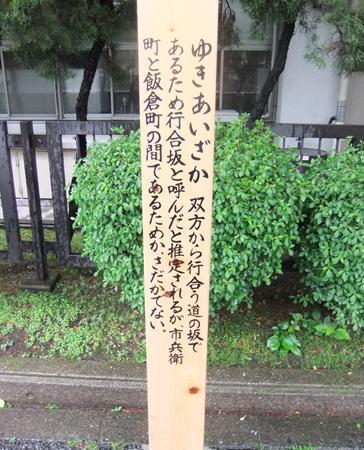 ゆきあいざか 双方から行合う道の坂で
あるため行合坂と呼んだと推定されるが、市兵衛
町と飯倉町の間であるためか、さだかでない。